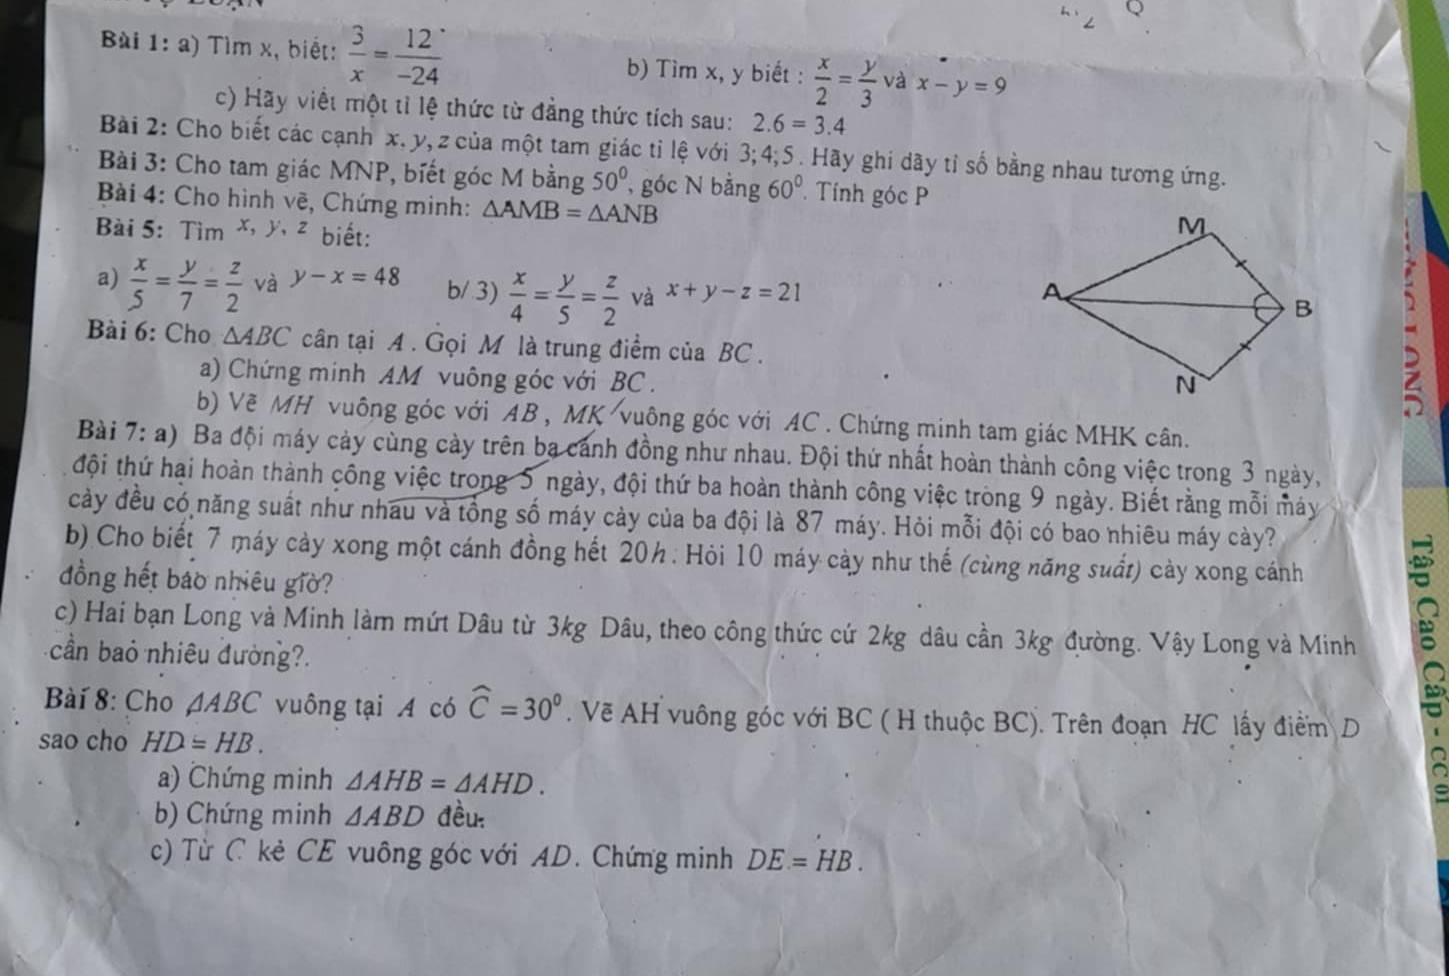 Bài 1: a) Tìm x, biết: 3/x = 12/-24 b) Tìm x, y biết : x/2 = y/3 và x - y = 9
c) Hãy viết một tỉ lệ thức từ đẳng thức tích sau: 2.6 = 3.4
Bài 2: Cho biết các cạnh x, y, z của một tam giác tỉ lệ với 3; 4; 5 . Hãy ghi dãy tỉ số bằng nhau tương ứng.
Bài 3: Cho tam giác MNP, biết góc M bằng 50⁰, góc N bằng 60⁰. Tính góc P
Bài 4: Cho hình vẽ, Chứng minh: ΔAMB = ΔANB
Bài 5: Tìm x, y, z biết:
a) x/5 = y/7 = z/2 và y - x = 48 b/ 3) x/4 = y/5 = z/2 và x + y - z = 21
M
A
B
N
Bài 6: Cho ΔABC cân tại A . Gọi M là trung điểm của BC .
a) Chứng minh AM vuông góc với BC .
b) Vẽ MH vuông góc với AB , MK vuông góc với AC . Chứng minh tam giác MHK cân.
Bài 7: a) Ba đội máy cày cùng cày trên ba cánh đồng như nhau. Đội thứ nhất hoàn thành công việc trong 3 ngày,
đội thứ hai hoàn thành công việc trong 5 ngày, đội thứ ba hoàn thành công việc trong 9 ngày. Biết rằng mỗi máy
cày đều có năng suất như nhau và tổng số máy cày của ba đội là 87 máy. Hỏi mỗi đội có bao nhiêu máy cày?
b) Cho biết 7 máy cày xong một cánh đồng hết 20h . Hỏi 10 máy cày như thế (cùng năng suất) cày xong cánh
đồng hết bao nhiêu giờ?
c) Hai bạn Long và Minh làm mứt Dâu từ 3kg Dâu, theo công thức cứ 2kg dâu cần 3kg đường. Vậy Long và Minh
cần bao nhiêu đường?.
Bài 8: Cho ΔABC vuông tại A có Ĉ = 30⁰ . Vẽ AH vuông góc với BC ( H thuộc BC). Trên đoạn HC lấy điểm D
sao cho HD = HB .
a) Chứng minh ΔAHB = ΔAHD .
b) Chứng minh ΔABD đều.
c) Từ C kẻ CE vuông góc với AD . Chứng minh DE = HB .
Tập Cao Cấp - CC 01